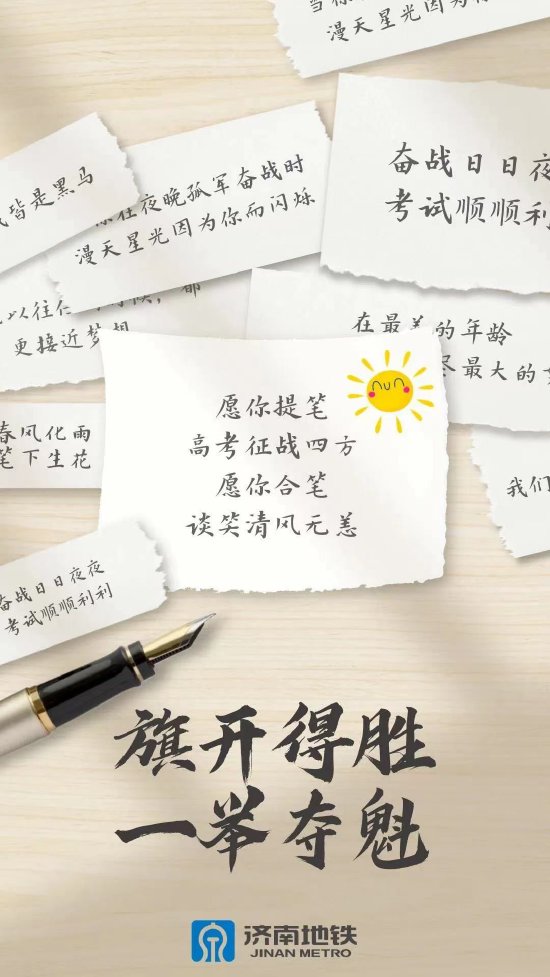 漫天星光因为你
奋战日日夜
考试顺顺利利
皆是黑马
你在夜晚孤军奋战时
漫天星光因为你而闪烁
更接近梦想
在最美的年龄
尽最大的
春风化雨
笔下生花
我们
愿你提笔
高考征战四方
愿你合笔
谈笑清风无恙
奋战日日夜夜
考试顺顺利利
旗开得胜
一举夺魁
济南地铁
JINAN METRO